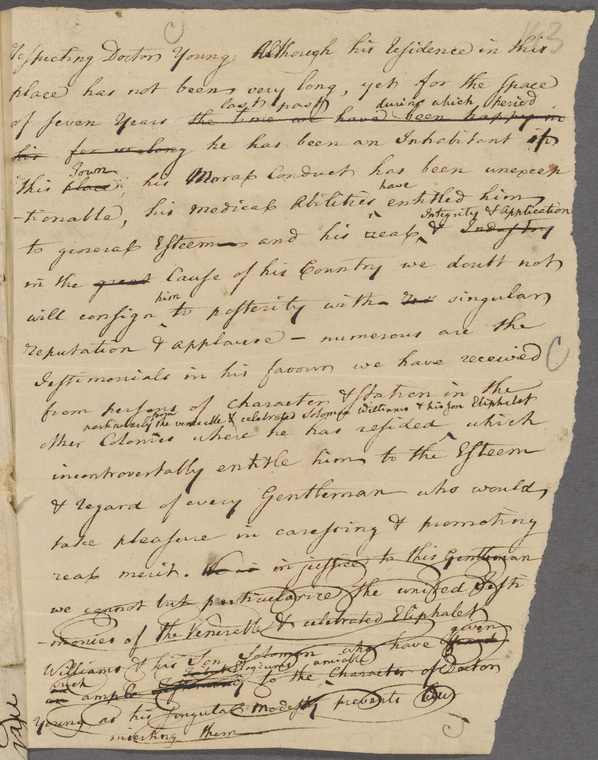 respecting Doctor Young. Although his residence in this
place has not been very long, yet for the space
last past during which period
of seven Years the time we have been happy in
his for so long he has been an Inhabitant of
Town
this place; his Moral Conduct has been unexcep
have
-tionable, his medical Abilities entitled him
Integrity & Application
to general Esteem and his zeal & Industry
in the great Cause of his Country we doubt not
him
will consign to posterity with singular
reputation & applause – numerous are the
Testimonials in his favour we have received
from persons of character & station in the
particularly from the venerable & celebrated Solomon Williams & his son Eliphalet
other Colonies where he has resided which
incontrovertably entitle him to the Esteem
& regard of every Gentleman who would
take pleasure in caressing & promoting
real merit. in justice to this Gentleman
we cannot but particularize the united Testi
-monies of the Venerable & celebrated Eliphalet
Williams & his Son Solomon who have given
such amiable
an ample to the Character of Doctor
Young as his singular modesty prevents our
inserting them